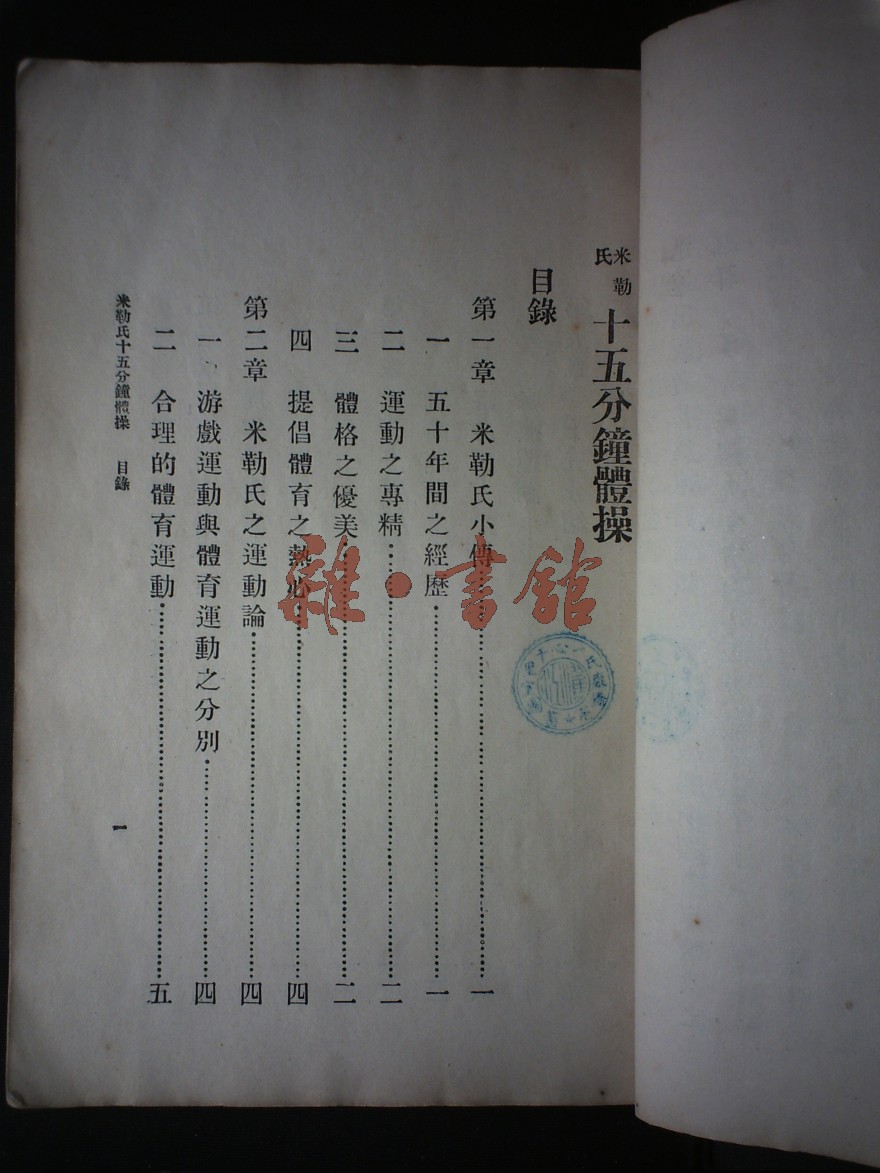 米勒氏 十五分鐘體操
目錄
第一章 米勒氏小傳……一
一 五十年間之經歷……一
二 運動之專精……二
三 體格之優美……二
四 提倡體育之熱心……四
第二章 米勒氏之運動論……四
一、游戲運動與體育運動之分別……四
二 合理的體育運動……五
米勒氏十五分鐘體操 目錄
一
雜·書館